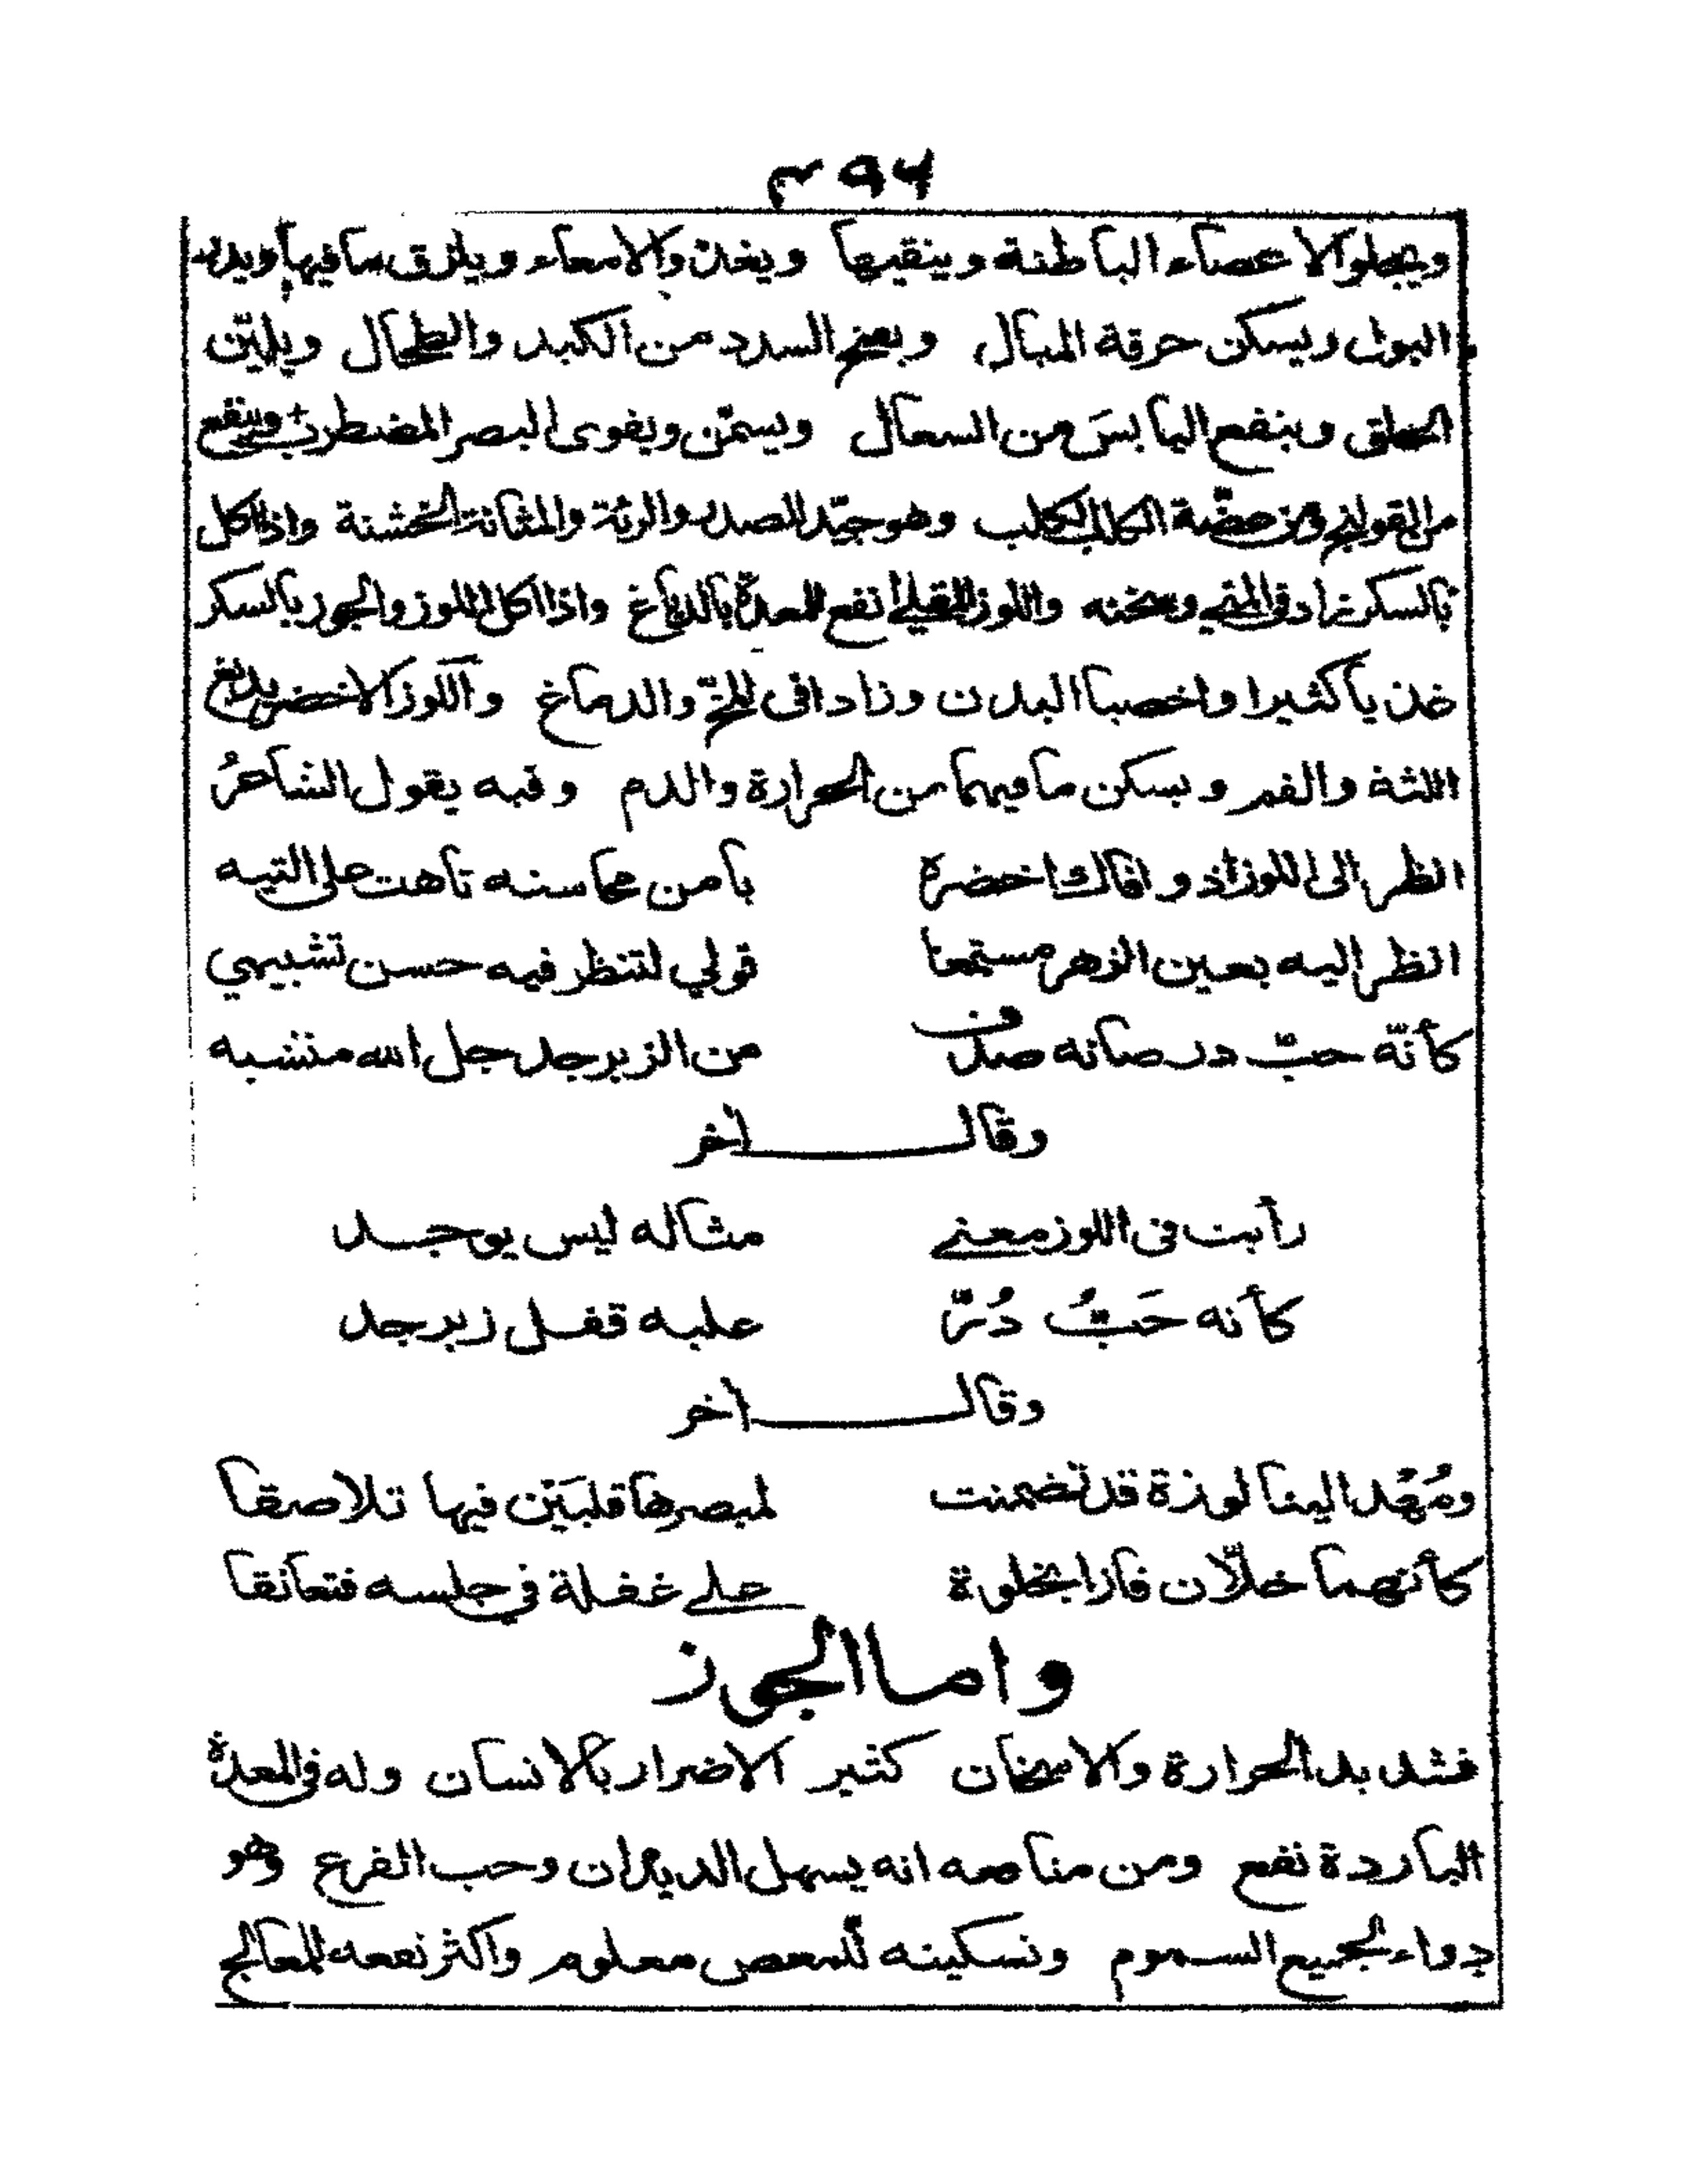 ٣٩٤
ويجلو الاعضاء الباطنة وينقيها ويغذو الامعاء ويلزق ما فيها ويدر
البول ويسكن حرقة المبال ويفتح السدد من الكبد والطحال ويليّن
الحلق وينفع اليابسَ من السعال ويسمّن ويقوى البصر المضطرب وينفع
من القولنج ومن عضّة الكلب الكلب وهو جيّد للصدر والرئة والمثانة الخشنة واذا اكل
بالسكر زاد فى المنى وسخنه واللوز المقلى انفع للمعدة بالدباغ واذا اكل اللوز والجوز بالسكر
غذيا كثيرا واخصبا البدن وزادا فى المخّ والدماغ واللوز الاخضر يدبغ
اللثة والفم ويسكن ما فيهما من الحرارة والدم وفيه يقول الشاعرُ
انظر الى اللوز اذ وافاك اخضره يا من محاسنه تاهت على التيه
انظر إليه بعين الزهر مستمعا قولي لتنظر فيه حسن تشبيهي
كأنّه حبّ در صانه صدف من الزبرجد جل الله منشيه
وقال اخر
رأيت فى اللوز معنى مثاله ليس يوجد
كأنه حَبُّ دُرّ عليه قفل زبرجد
وقال اخر
ومُهْد الينا لوزة قد تضمنت لمبصرها قلبَيْن فيها تلاصقا
كأنهما خلّان فازا بخلوة على غفلة في جلسه فتعانقا
واما الجوز
فشديد الحرارة والاسخان كثير الاضرار بالانسان وله فى المعدة
الباردة نفع ومن منافعه انه يسهل الديدان وحب القرع وهو
دواء لجميع السموم وتسكينه للمغص معلوم واكثر نفعه للمعالج